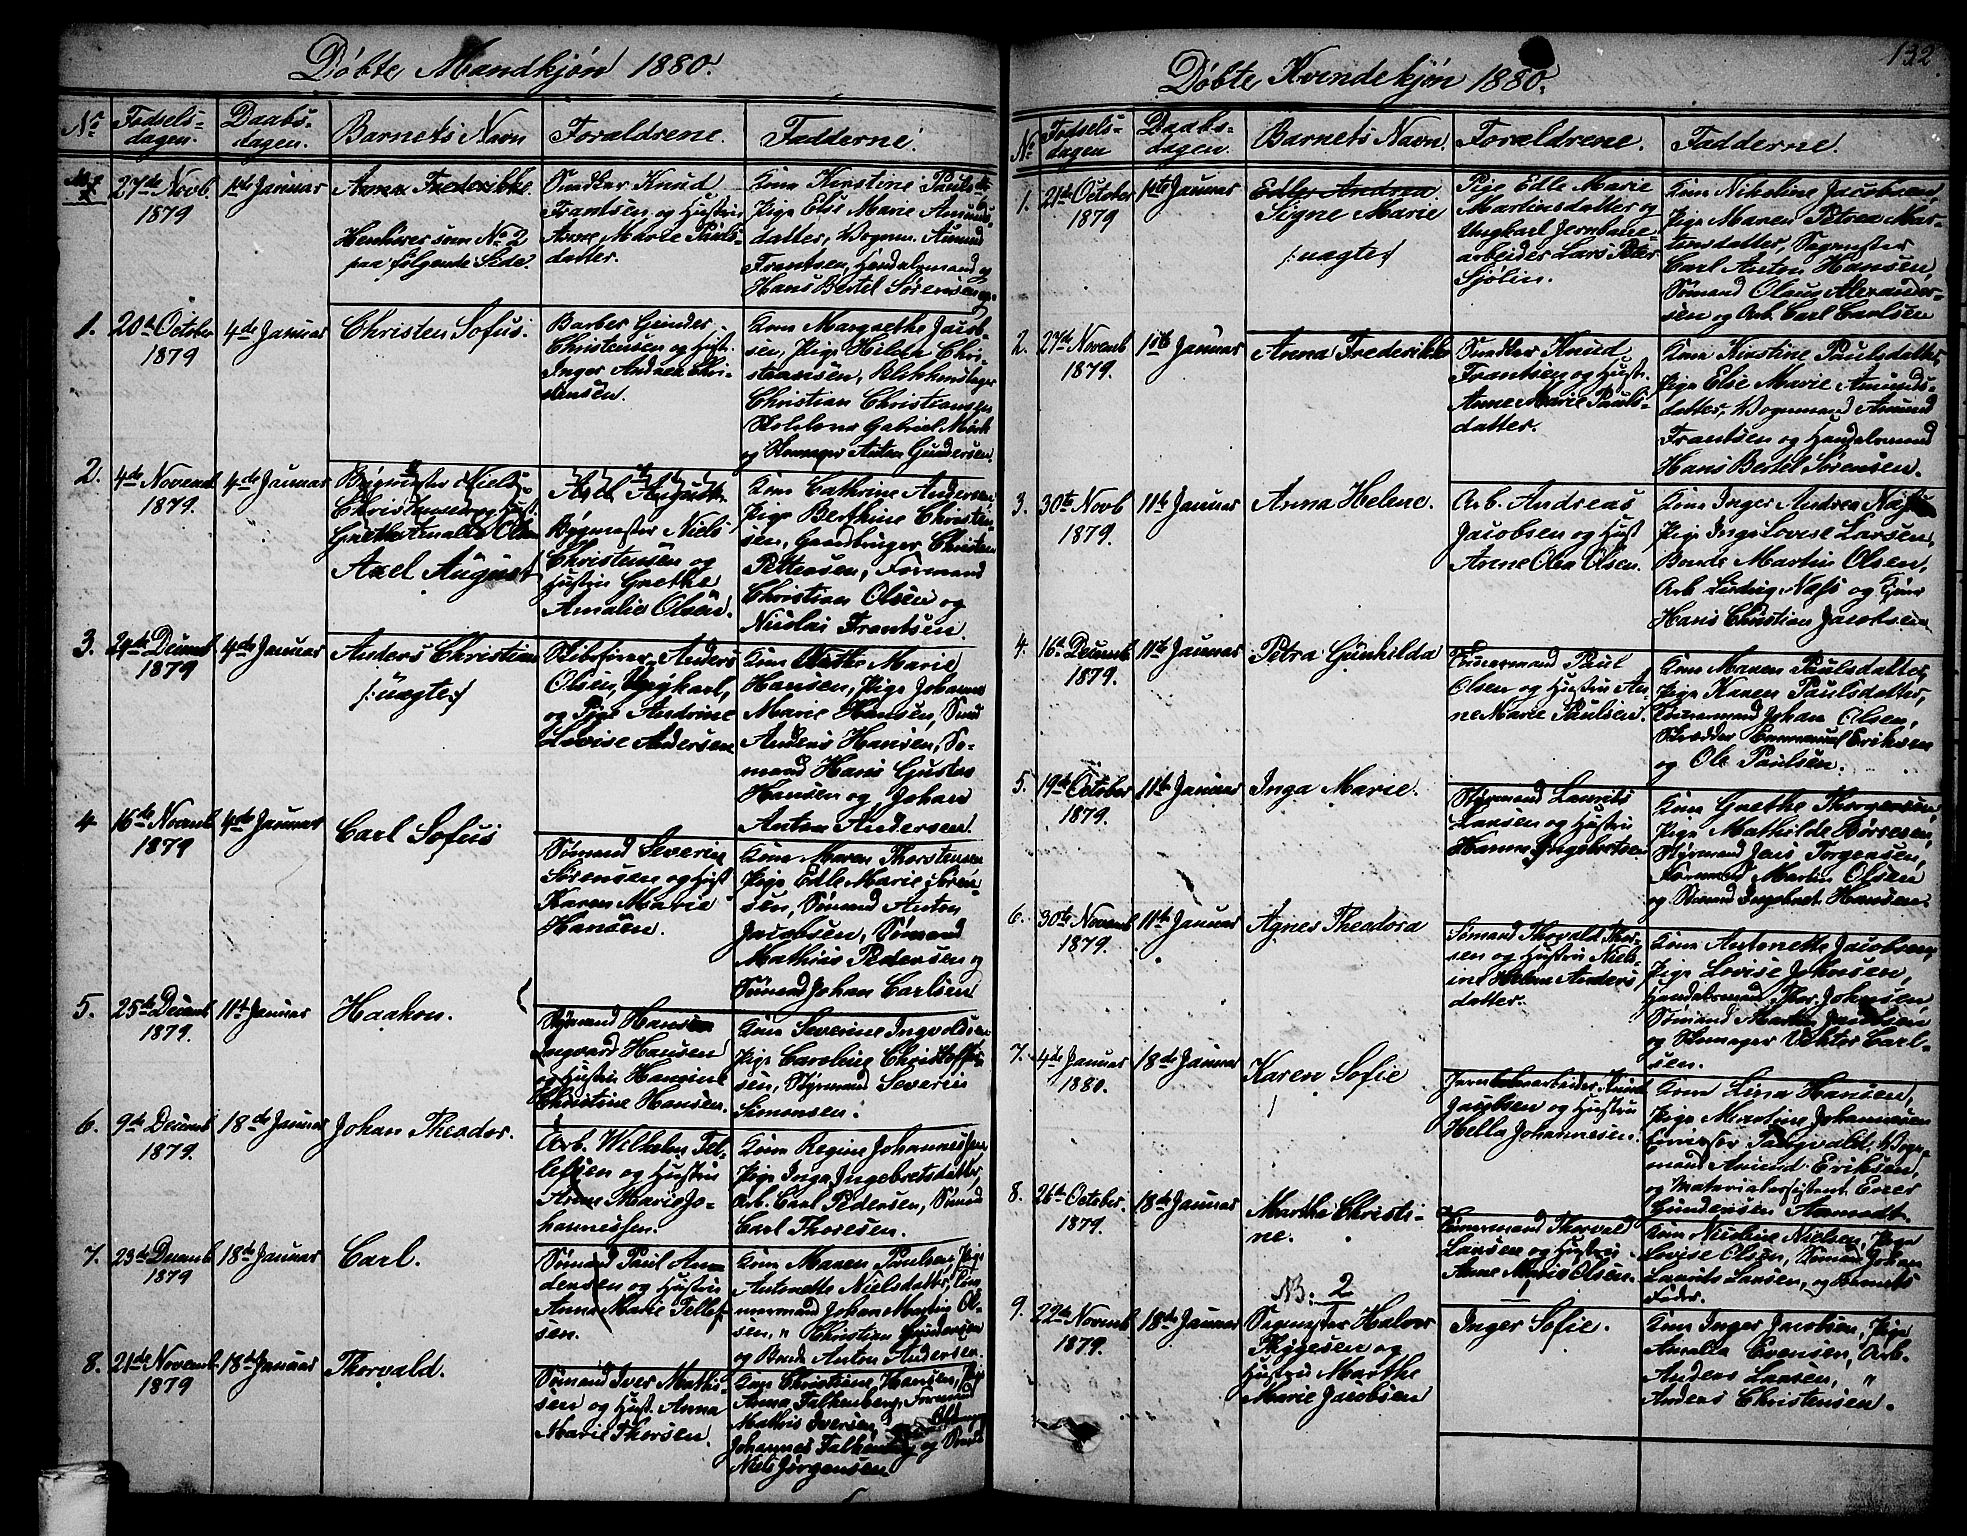 Døbte Mandkjøn 1880.
No
Fødsels-
dagen.
Daabs-
dagen.
Barnets Navn
Forældrene.
Fadderne.
27de Novb
1879
1ste Januar
Anna Frederikke
Henhører som No 2
paa følgende Side.
Smedker Knud
Frantsen og Hustru
Anne Marie Pauls-
datter.
Kone Kirstine Paulsdtt
Pige Else Marie Amunds-
datter, Vognm. Amund
Frantsen, Handelsmand og
Hans Bertel Sørensen
1.
20de October
1879
4de Januar
Christen Sofus.
Barber Gunder
Christensen og Hust.
Inger Andrea Chri-
stensen.
Kone Margrethe Jacob-
sen, Pige Helene Chri-
stiansen, Blikkenslager
Christian Christiansen
Gabriel Mørk
og Skomager Anton Gundersen.
2.
4de Novemb
1879.
4de Januar
Bygmester Niels
Christensen og Hust.
Grethe Amalie Olsen
Axel August
Axel August
Bygmester Niels
Christensen og
Hustru Grethe
Amalie Olsen.
Kone Cathrine Andersen
Pige Berthine Christen-
sen, Gaardbruger Christen
Pettersen, Formand
Christian Olsen og
Nicolai Frantsen.
3.
29de Decemb
1879
4de Januar
Anders Christian
/: uægte :/
Skibsfører Anders
Olsen, Ungkarl,
og Pige Andrine
Lovise Andersen
Kone Marie
Hansen, Pige Johanne
Marie Hansen, Smed
Anders Hansen, Sø-
mand Hans Gustav
Hansen og Johan
Anton Andersen.
4
16de Novemb
1879
4de Januar
Carl Sofus
Sømand Severin
Sørensen og Hust
Karen Marie
Hansen.
Kone Maren Thorstensen
Pige Edle Marie Søren-
sen, Sømand Anton
Jacobsen, Sømand
Mathias Pedersen og
Sømand Johan Carlsen
5.
25de Decemb
1879.
11te Januar
Haakon.
Styrmand Hansen
Ingvard Hansen
og Hustru Hansine
Christine Hansen.
Kone Severine Ingvoldsen
Pige Caroline Christoffer-
sen, Styrmand Severin
Simonsen.
6.
9de Decemb
1879.
18de Januar
Johan Theodor.
Arb. Wilhelm Tel-
lefsen og Hustru
Anne Marie Jo-
hannessen.
Kone Regine Johannessen,
Pige Inga Ingebretsdatter,
Arb. Carl Pedersen, Sømand
Carl Thoresen.
7.
23de Decemb
1879
18de Januar
Carl.
Sømand Paul An-
dersen og Hustru
Anna Marie Tellef-
sen.
Kone Maren Poulsen, Pige
Antonette Nielsdatter, Tøm-
mermand Johan Martin Ol-
sen, " Christian Gundersen
og Bonde Anton Andersen.
8.
21de Novemb.
1879
18de Januar
Thorvald.
Sømand Iver Mathi-
sen og Hust. Anna
Marie Thorsen.
Kone Christiane Hansen, Pige
Anna Falkenberg, Formand
Mathis Iversen,
Johannes Falkenberg og Smed
Niels Jørgensen
132.
Døbte Kvindekjøn 1880.
No
Fødsels-
dagen
Daabs-
dagen.
Barnets Navn.
Forældrene.
Fadderne.
1.
21de October
1879
1ste Januar
Edler Andrea
Signe Marie
/: uægte :/
Pige Edle Marie
Martinsdatter og
Ungkarl Jernbane-
arbeider Lars Peter
Sjølin.
Kone Nikoline Jacobsen,
Pige Maren Petrea Mar-
tinsdatter, Sagmester
Carl Anton Hansen,
Sømand Olaus Alexander-
sen og Arb. Carl Carlsen
2.
27de Novemb
1879.
1ste Januar
Anna Frederikke
Smedker Knud
Frantsen og Hustr.
Anne Marie Pauls-
datter.
Kone Kirstine Paulsdatter,
Pige Else Marie Amunds-
datter, Vognmand Amund
Frantsen og Handelsmand
Hans Bertel Sørensen.
3.
30te Novb
1879.
11te Januar
Anna Helene.
Arb. Andreas
Jacobsen og Hust
Anne Olea Olsen.
Kone Inger Andrea Næss
Pige Inga Lovise Larsen,
Bonde Martin Olsen,
Arb. Ludvig Næss og
Hans Christian Jacobsen
4.
16de Decemb
1879.
11te Januar
Petra Gunhilda
Tømmermand Paul
Olsen og Hustru An-
ne Marie Paulsen.
Kone Maren Paulsdatter,
Pige Karen Paulsdatter,
Tømmermand Johan Olsen,
Skrædder Emmanuel Eriksen
og Ole Paulsen.
5.
19de October
1879.
11te Januar
Inga Marie.
Styrmand Laurits
Larsen og Hustru
Hanna Ingebretsen
Kone Grethe Thorgersen,
Pige Mathilde Børresen,
Styrmand Jens Torgersen,
Formand Martin Olsen
og Sømand Ingebret Hansen.
6.
30te Novemb
1879.
11te Januar
Agnes Theodora
Sømand Thorvald Thor-
sen og Hustru Niels-
ine Helene Anders-
datter.
Kone Antonette Jacobsen,
Pige Lovise Johnsen,
Handelsmand Thor Johnsen
Sømand Jacobsen
og Skomager Viktor Carl-
sen.
7.
4de Januar
1880.
18de Januar
Karen Sofie
Jernbanearbeider Knud
Jacobsen og Hustru
Hella Johannesen.
Kone Lina Hansen,
Pige Martine Johannesen
Vogn-
mand Amund Eriksen,
og Materialassistent Emer
Gundersen Aamodt.
8.
26de October.
1879.
18de Januar
Marthe Christi-
ne.
Tømmermand Thorvald
Larsen og Hustru
Anne Marie Olsen.
Kone Nicoline Nielsen, Pige
Lovise Olsen, Sømand Johan
Laurits Larsen, og Barnets
Fader.
9.
22de Novemb
1879.
18de Januar
NB: 2
Sagmester Halvor
Thygesen og
Hustru Marthe
Marie Jacobsen
Inger Sofie.
Kone Inger Jacobsen, Pige
Amalia Evensen, Arb.
Anders Larsen, "
Anders Christensen.